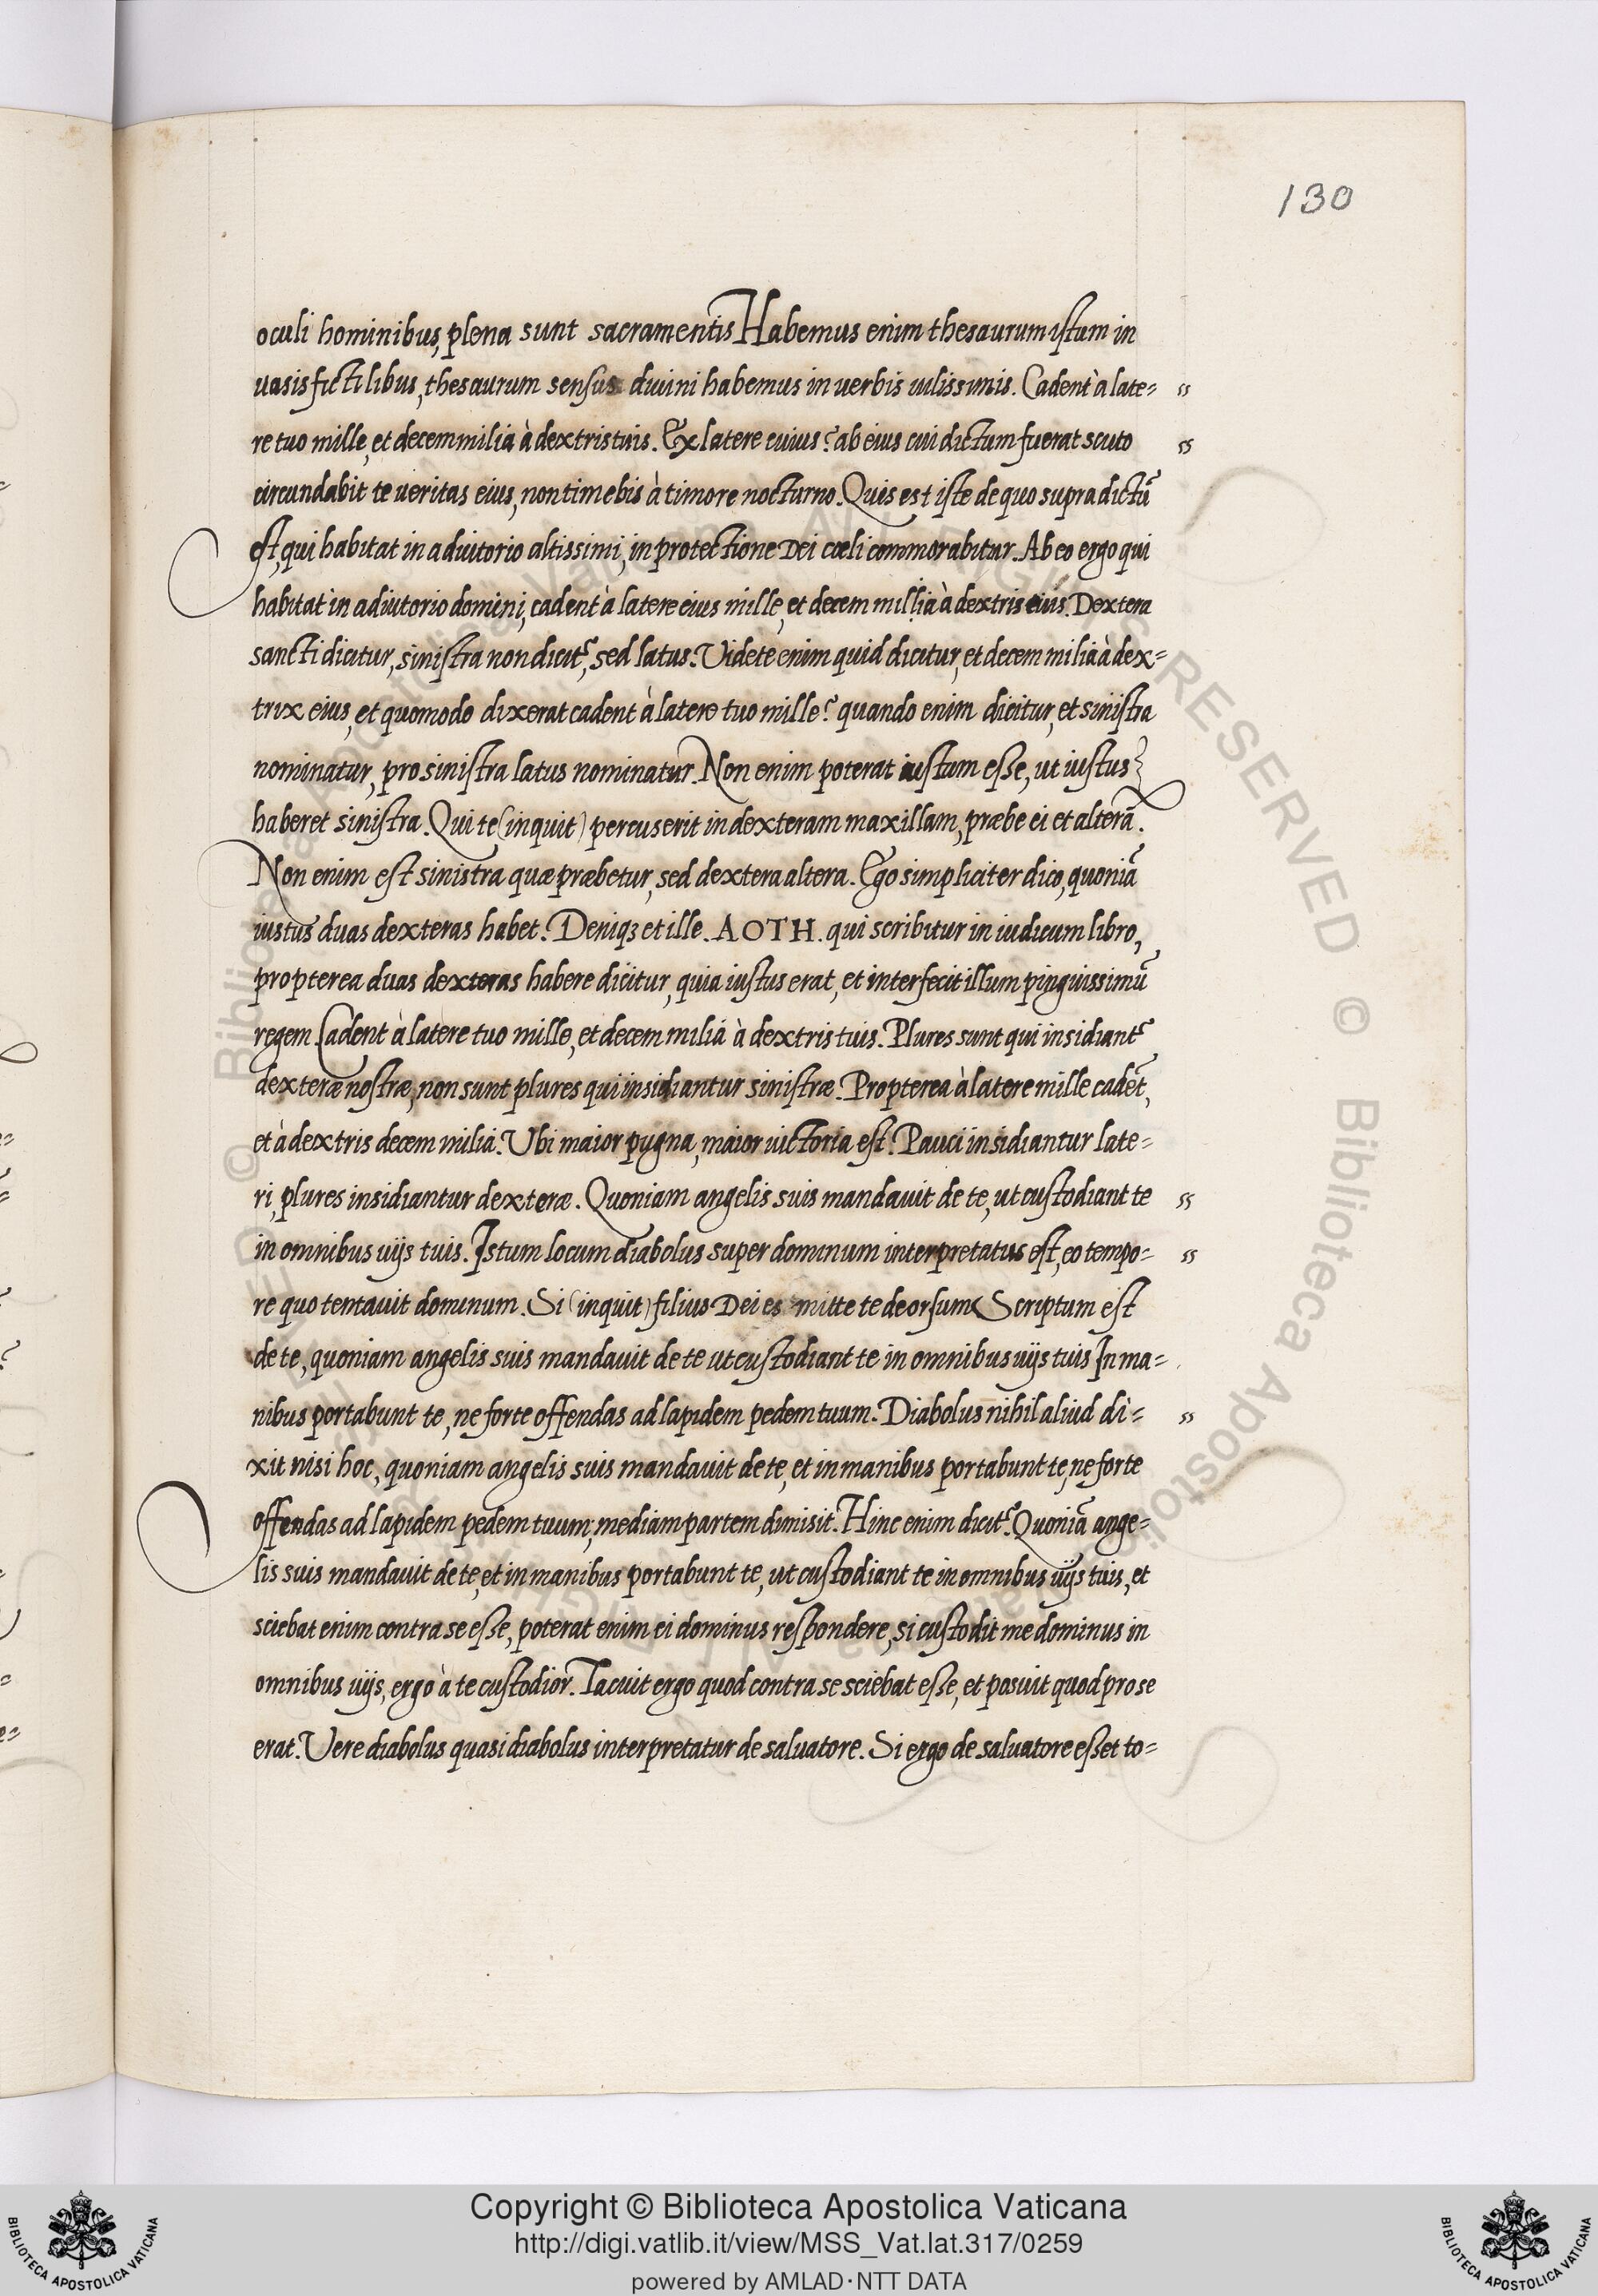 130
oculi hominibus, plena sunt sacramentis Habemus enim thesaurum istum in
uasis fictilibus, thesaurum sensus diuini habemus in uerbis uilissimis. Cadent à late= ss
re tuo mille, et decem milia à dextris tuis. Ex latere cuius? ab eius cui dictum fuerat scuto ss
circundabit te ueritas eius, non timebis à timore nocturno. Quis est iste de quo supra dictũ
est, qui habitat in adiutorio altissimi, in protectione Dei cœli commorabitur. Ab eo ergo qui
habitat in adiutorio domini, cadent à latere eius mille, et decem millia à dextris eius. Dextera
sancti dicitur, sinistra non dicit̃, sed latus. Videte enim quid dicitur, et decem milia à dex=
trix eius, et quomodo dixerat cadent à latere tuo mille? quando enim dicitur, et sinistra
nominatur, pro sinistra latus nominatur. Non enim poterat iustum esse, ut iustus
haberet sinistra. Qui te (inquit) percuserit in dexteram maxillam, præbe ei et alterã.
Non enim est sinistra quæ præbetur, sed dextera altera. Ego simpliciter dico, quoniã
iustus duas dexteras habet. Deniqꝫ et ille. AOTH. qui scribitur in iudicum libro,
propterea duas dexteras habere dicitur, quia iustus erat, et interfecit illum pinguissimũ
regem. Cadent à latere tuo mille, et decem milia à dextris tuis. Plures sunt qui insidiant̃
dexteræ nostræ, non sunt plures qui insidiantur sinistræ. Propterea à latere mille cadẽt,
et à dextris decem milia. Ubi maior pugna, maior uictoria est. Pauci insidiantur late=
ri, plures insidiantur dexteræ. Quoniam angelis suis mandauit de te, ut custodiant te ss
in omnibus uijs tuis. Istum locum diabolus super dominum interpretatus est, eo tempo= ss
re quo tentauit dominum. Si (inquit) filius Dei es mitte te deorsum Scriptum est
de te, quoniam angelis suis mandauit de te ut custodiant te in omnibus uijs tuis In ma=
nibus portabunt te, ne forte offendas ad lapidem pedem tuum. Diabolus nihil aliud di= ss
xit nisi hoc, quoniam angelis suis mandauit de te, et in manibus portabunt te, ne forte
offendas ad lapidem pedem tuum; mediam partem dimisit. Hinc enim dicit̃. Quoniã ange=
lis suis mandauit de te, et in manibus portabunt te, ut custodiant te in omnibus uijs tuis, et
sciebat enim contra se esse, poterat enim ei dominus respondere, si custodit me dominus in
omnibus uijs, ergo à te custodior. Tacuit ergo quod contra se sciebat esse, et posuit quod pro se
erat. Vere diabolus quasi diabolus interpretatur de saluatore. Si ergo de saluatore esset to=
© Biblioteca Apostolica Vaticana ALL RIGHTS RESERVED © Biblioteca Apostolica Vaticana ALL RIGHTS RESERVED
Copyright © Biblioteca Apostolica Vaticana
http://digi.vatlib.it/view/MSS_Vat.lat.317/0259
powered by AMLAD·NTT DATA
BIBLIOTECA APOSTOLICA VATICANA
BIBLIOTECA APOSTOLICA VATICANA